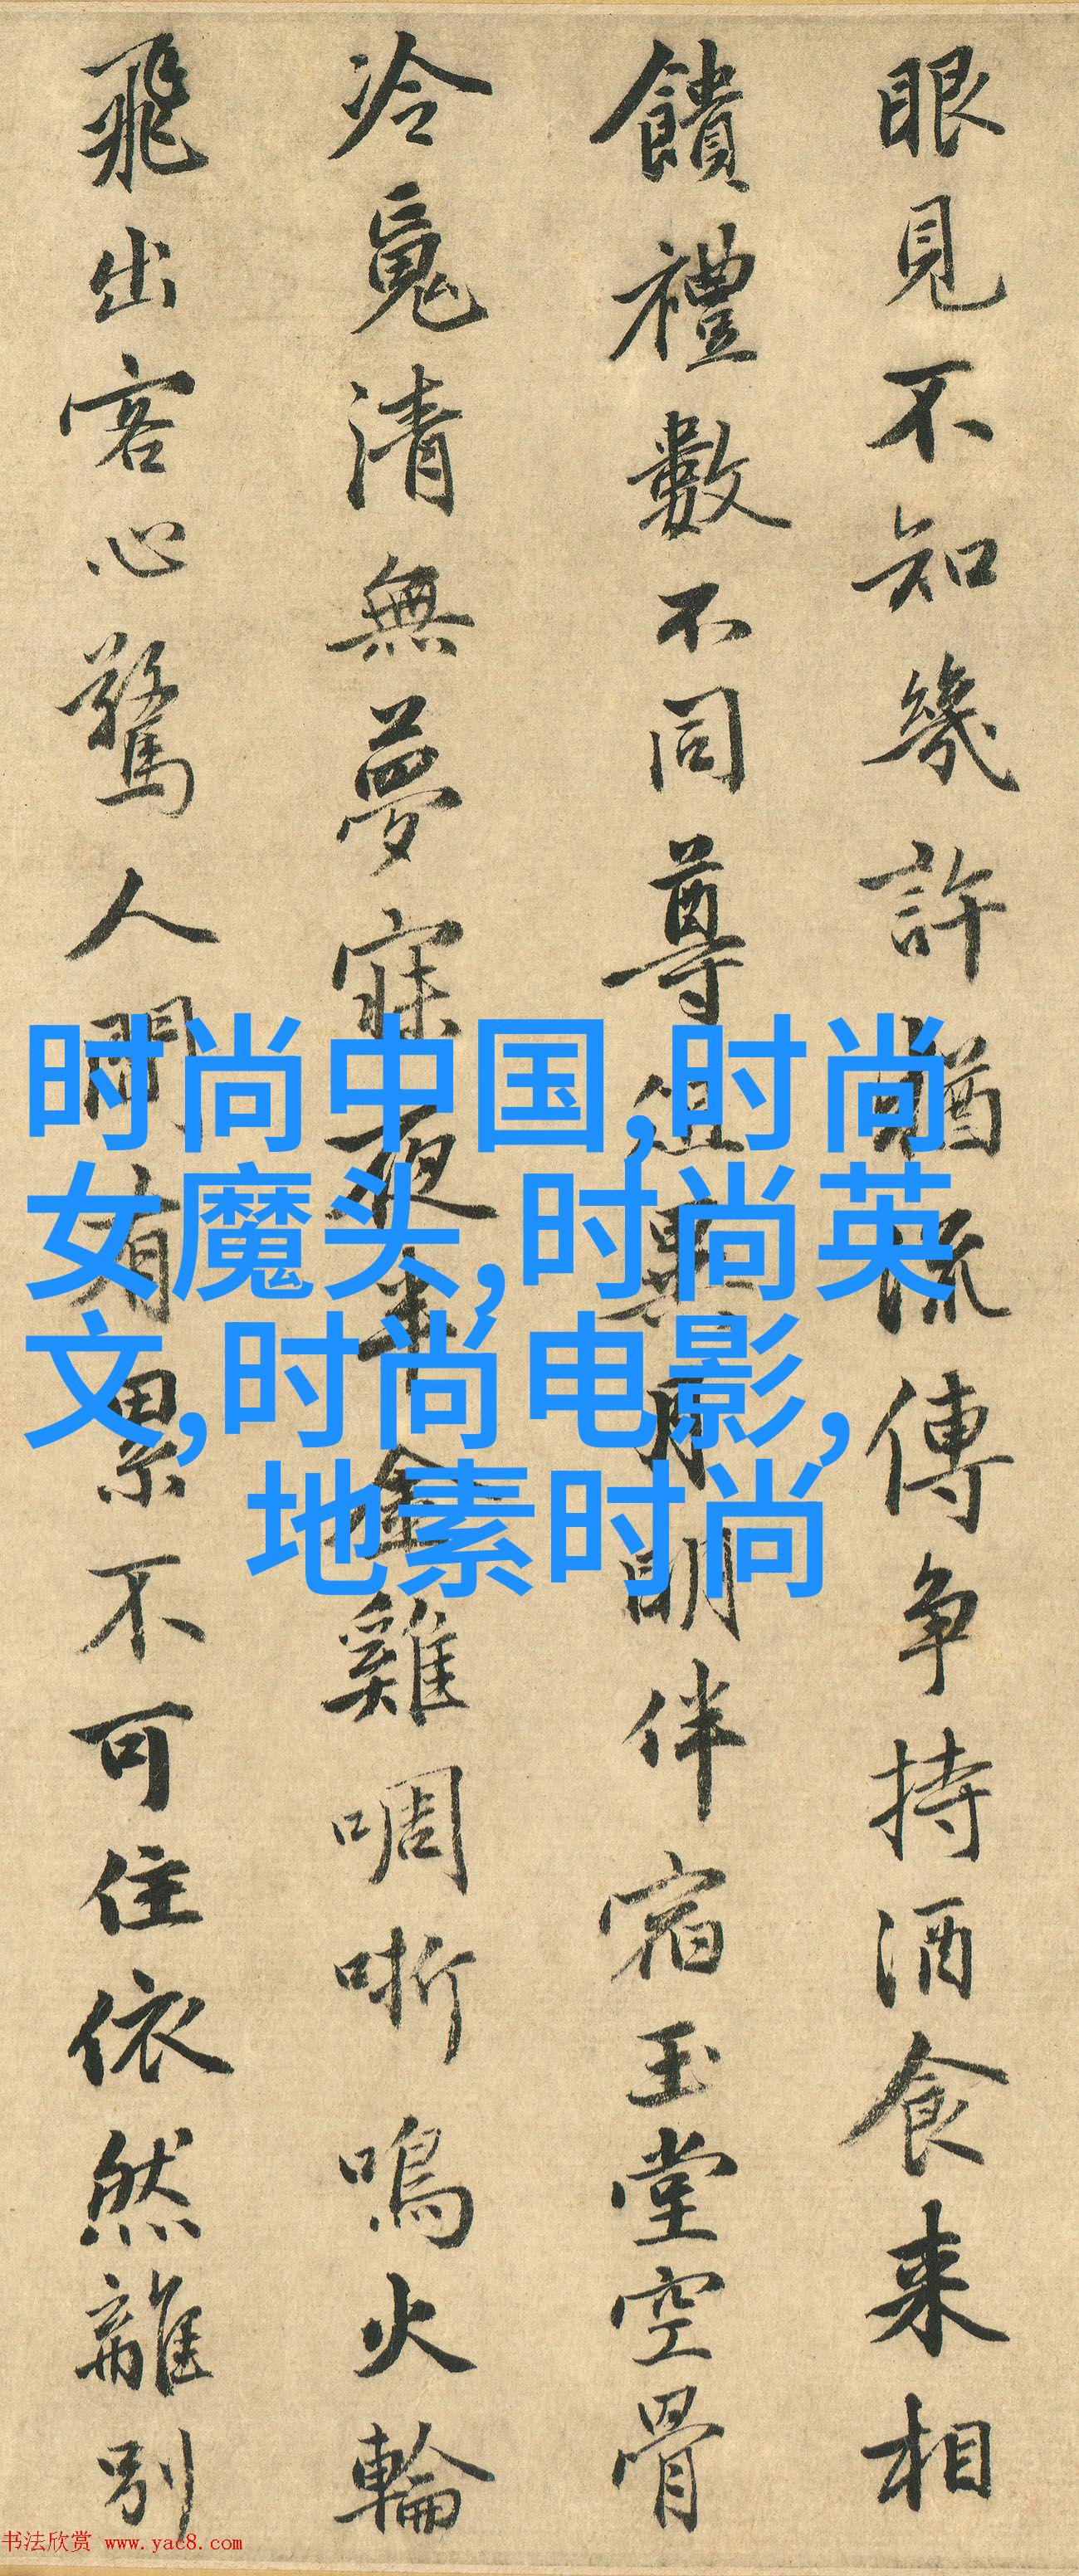 眼見不知幾許猶流傳争持酒食来相
饋禮數不同尊俎異月明伴宿玉堂空骨
冷魂清無夢寐夜半金雞啁哳鳴火輪
飛出客心驚人間有累不可住依然離別
时尚中国,时尚
女魔头,时尚英
文,时尚电影,
地素时尚
书法欣赏 www.yac8.com